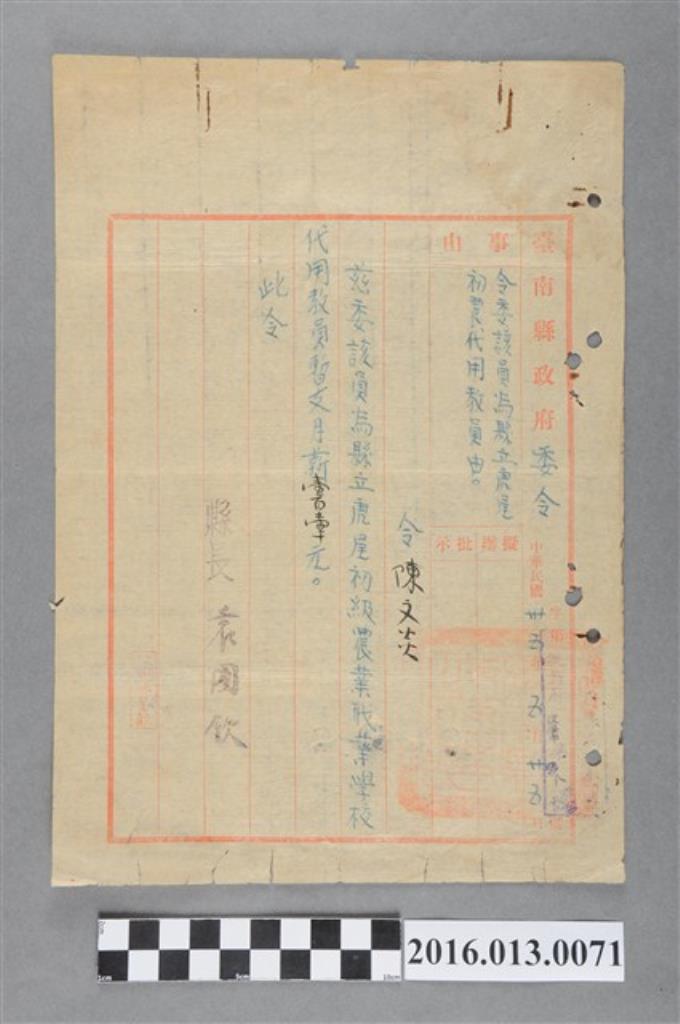 臺南縣政府委令
中華民國卅五年五月廿五日
事由
令委該員為縣立虎尾
初農代用教員由。
擬辦批示
令陳文炎
茲委該員為縣立虎尾初級農業職業學校
代用教員暫支月薪壹百元。
此令
縣長袁國欽
2016.013.0071